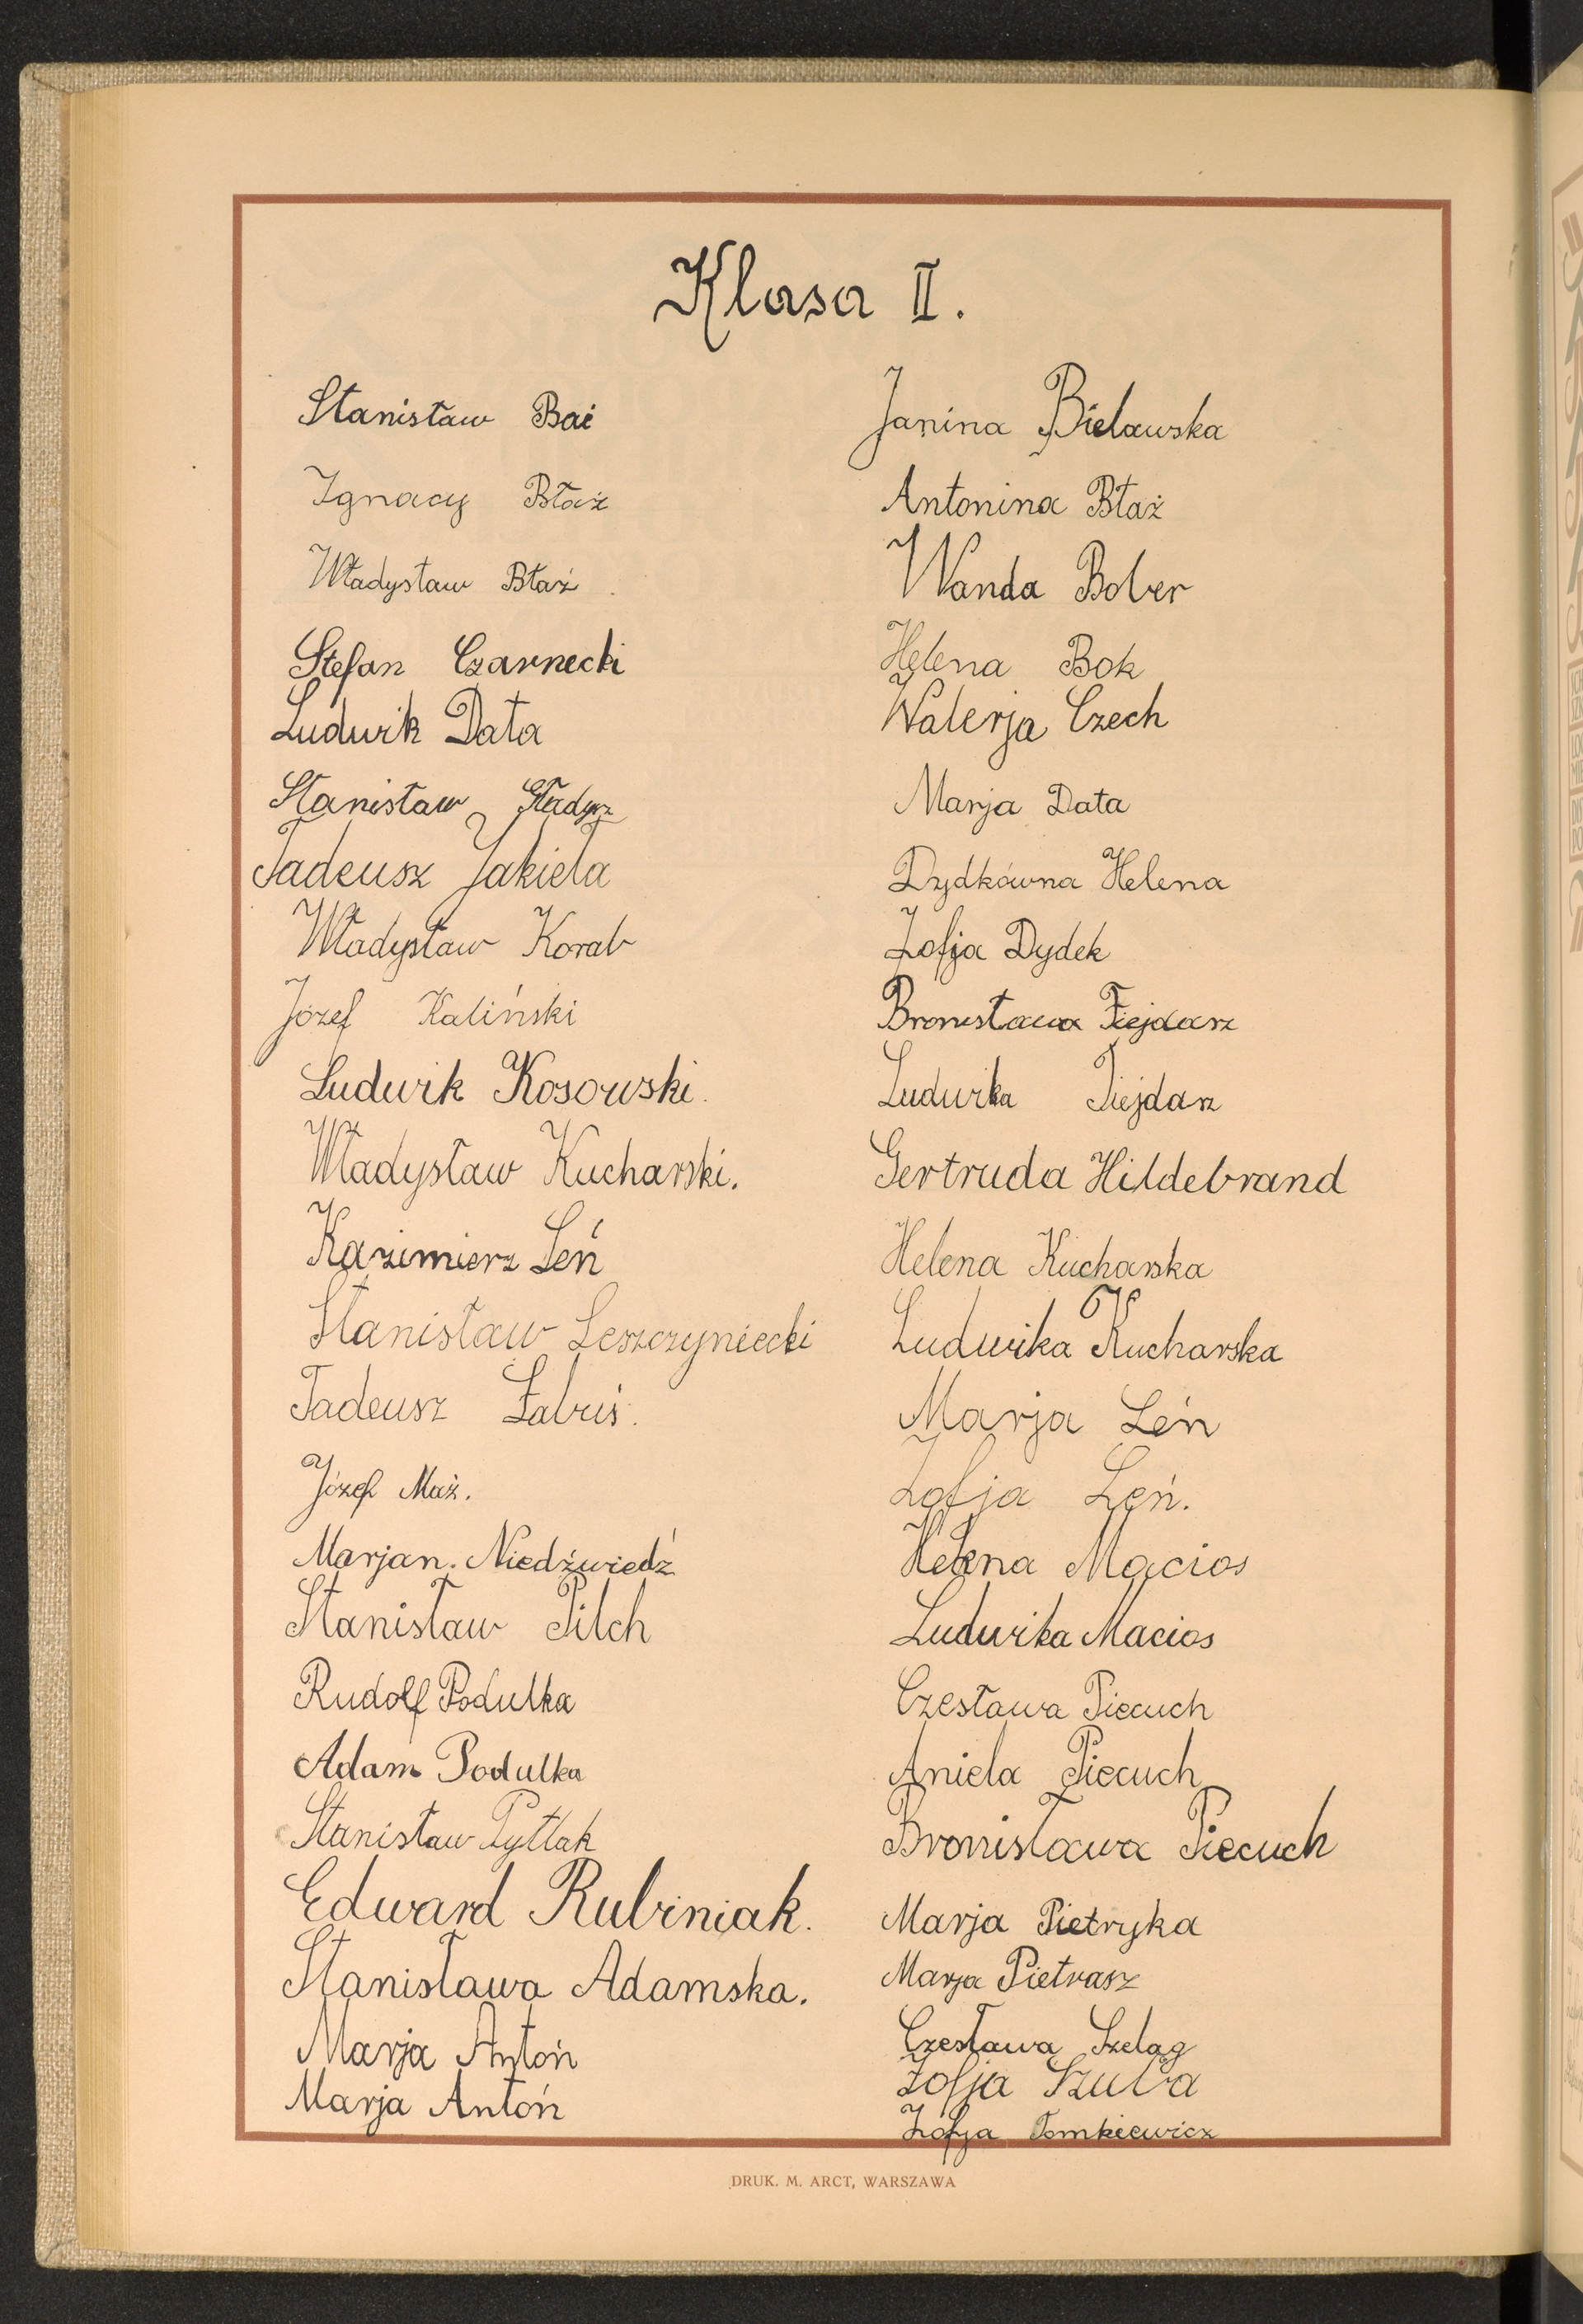 Klasa II.
Stanisław Bai
Ignacy Błaż
Władysław Błaż
Stefan Czarnecki
Ludwik Data
Stanisław Gładysz
Tadeusz Jakieła
Władysław Korab
Józef Kaliński
Ludwik Kosowski.
Władysław Kucharski.
Kazimierz Leń
Stanisław Leszczyniecki
Tadeusz Łabuś.
Józef Muż.
Marjan. Niedźwiedź
Stanisław Pilch
Rudolf Podulka
Adam Podulka
Stanisław Pytlak
Edward Rubiniak.
Stanisława Adamska.
Marja Antoń
Marja Antoń
Janina Bielawska
Antonina Błaż
Wanda Bober
Helena Bok
Walerja Czech
Marja Data
Dydkówna Helena
Zofja Dydek
Bronisława Fiejdasz
Ludwika Fiejdasz
Gertruda Hildebrand
Helena Kucharska
Ludwika Kucharska
Marja Leń
Zofja Leń.
Helena Macios
Ludwika Macios
Czesława Piecuch
Aniela Piecuch
Bronisława Piecuch
Marja Pietryka
Marja Pietrasz
Czesława Szeląg
Zofja Szuba
Zofja Tomkiewicz
DRUK. M. ARCT, WARSZAWA